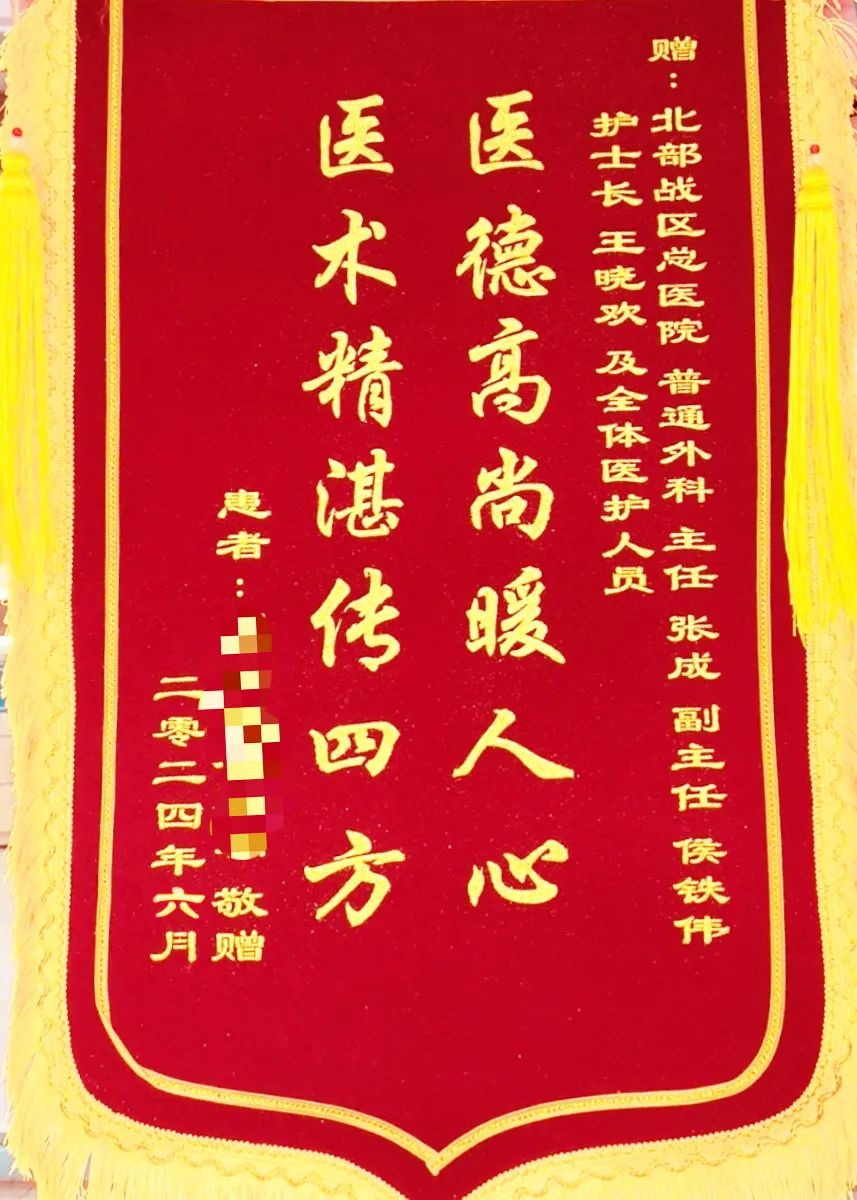 赠：北部战区总医院 普通外科 主任 张成 副主任 侯铁伟
护士长 王晓欢 及全体医护人员
医德高尚暖人心
医术精湛传四方
患者： 敬赠
二零二四年六月